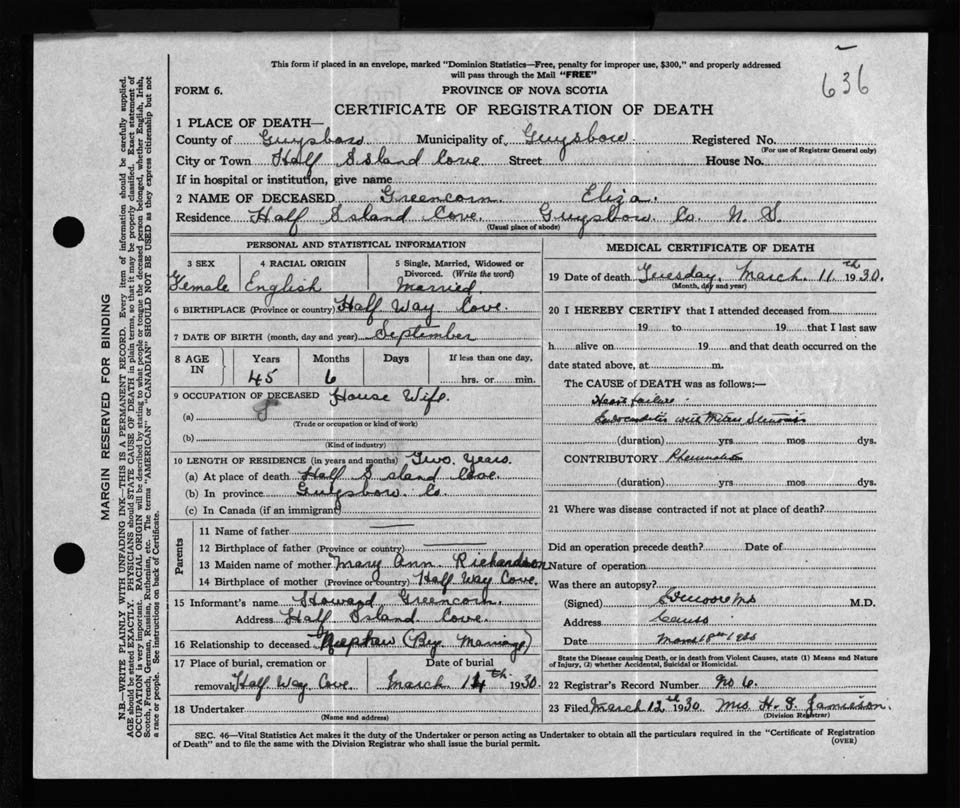 636
This form if placed in an envelope, marked "Dominion Statistics—Free, penalty for improper use, $300," and properly addressed
will pass through the Mail "FREE"
FORM 6.
PROVINCE OF NOVA SCOTIA
CERTIFICATE OF REGISTRATION OF DEATH
1 PLACE OF DEATH—
County of Guysboro Municipality of Guysboro Registered No.
(For use of Registrar General only)
City or Town Half Island Cove Street House No.
If in hospital or institution, give name
2 NAME OF DECEASED Greencorn Eliza.
Residence Half Island Cove. Guysboro Co. N. S.
(Usual place of abode)
PERSONAL AND STATISTICAL INFORMATION
3 SEX 4 RACIAL ORIGIN 5 Single, Married, Widowed or
Divorced. (Write the word)
Female English Married.
6 BIRTHPLACE (Province or country) Half Way Cove.
7 DATE OF BIRTH (month, day and year) September
8 AGE IN Years Months Days If less than one day,
45 6 hrs. or min.
9 OCCUPATION OF DECEASED House Wife.
(a)
(Trade or occupation or kind of work)
(b)
(Kind of industry)
10 LENGTH OF RESIDENCE (in years and months) Two Years.
(a) At place of death Half Island Cove
(b) In province Guysboro Co.
(c) In Canada (if an immigrant)
Parents
11 Name of father —
12 Birthplace of father (Province or country) —
13 Maiden name of mother Mary Ann Richardson
14 Birthplace of mother (Province or country) Half Way Cove.
15 Informant's name Howard Greencorn.
Address Half Island Cove.
16 Relationship to deceased Nephew (By Marriage)
17 Place of burial, cremation or Date of burial
removal Half Way Cove March 14th 1930
18 Undertaker
(Name and address)
MEDICAL CERTIFICATE OF DEATH
19 Date of death Tuesday, March 11th 1930.
(Month, day and year)
20 I HEREBY CERTIFY that I attended deceased from
19 to 19 that I last saw
h alive on 19 and that death occurred on the
date stated above, at m.
The CAUSE of DEATH was as follows:—
Heart failure
with Mitral Stenosis
(duration) yrs mos dys.
CONTRIBUTORY
(duration) yrs mos dys.
21 Where was disease contracted if not at place of death?
Did an operation precede death? Date of
Nature of operation
Was there an autopsy?
(Signed) M.D.
Address Canso
Date
State the Disease causing Death, or in death from Violent Causes, state (1) Means and Nature
of Injury, (2) whether Accidental, Suicidal or Homicidal.
22 Registrar's Record Number No 6.
23 Filed March 12th 1930 Mrs. H. Jamieson.
(Division Registrar)
SEC. 46—Vital Statistics Act makes it the duty of the Undertaker or person acting as Undertaker to obtain all the particulars required in the "Certificate of Registration
of Death" and to file the same with the Division Registrar who shall issue the burial permit.
(OVER)
MARGIN RESERVED FOR BINDING
N.B.—WRITE PLAINLY WITH UNFADING INK—THIS IS A PERMANENT RECORD. Every item of information should be carefully supplied.
AGE should be stated EXACTLY. PHYSICIANS should STATE CAUSE OF DEATH in plain terms, so that it may be properly classified. Exact statement of
OCCUPATION is very important. RACIAL ORIGIN will be described by stating to what people or tongue the deceased person belonged, whether English, Irish,
Scotch, French, German, Russian, Ruthenian, etc. The terms "AMERICAN" or "CANADIAN" SHOULD NOT BE USED as they express citizenship but not
a race or people. See instructions on back of Certificate.